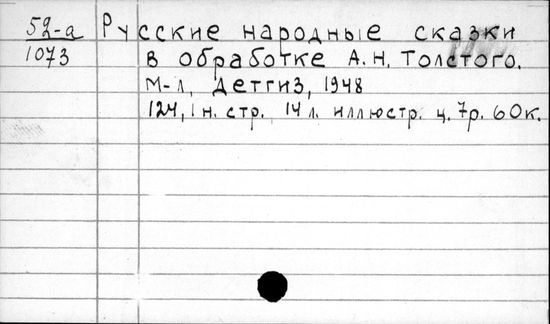 52-а
1073
Русские народные сказки
в обработке А.Н. Толстого.
М-Л, Детгиз, 1948
124, 1 н. стр. 14 л. иллюстр. ц. 7р. 60к.